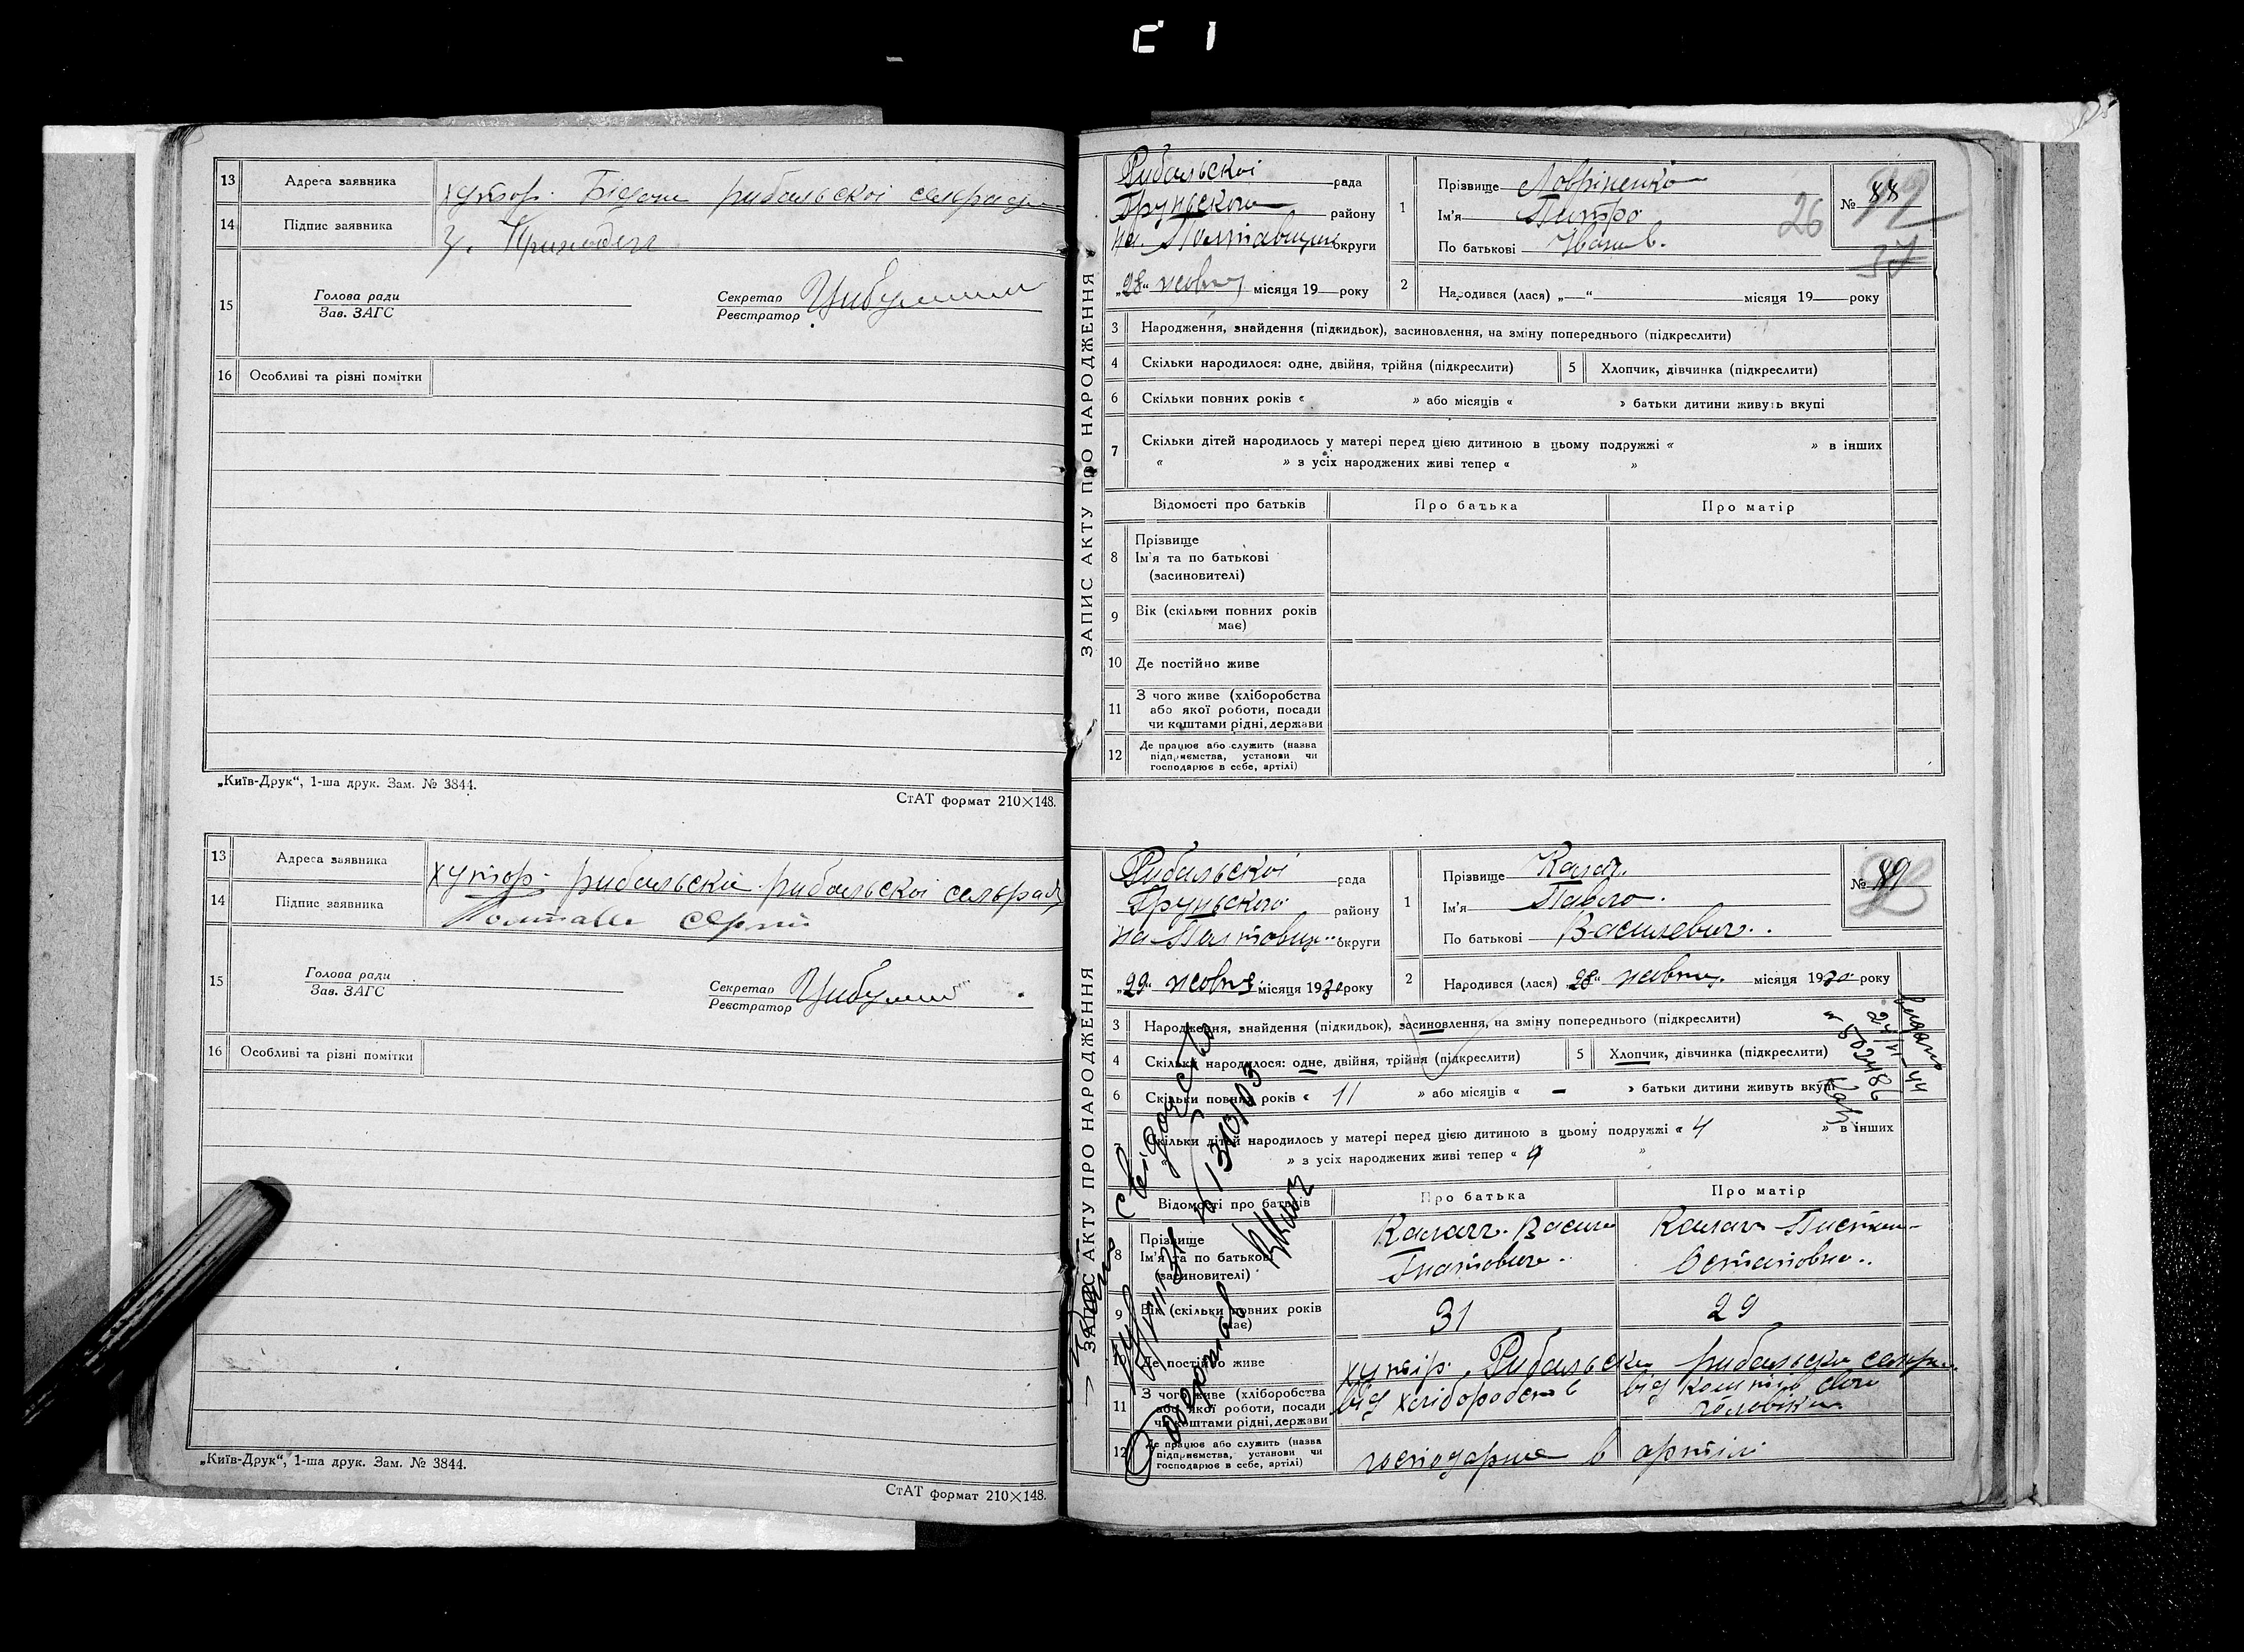 13 Адреса заявника хутор. Бідани рибальскої сельради
14 Підпис заявника
15 Голова ради
Зав. ЗАГС
Секретар
Реєстратор
16 Особливі та різні помітки
„Київ-Друк“, 1-ша друк. Зам. № 3844.
СтАТ формат 210×148.
13 Адреса заявника хутор. рибальскі рибальскої сельрад
14 Підпис заявника
15 Голова ради
Зав. ЗАГС
Секретар
Реєстратор
16 Особливі та різні помітки
„Київ-Друк“, 1-ша друк. Зам. № 3844.
СтАТ формат 210×148.
ЗАПИС АКТУ ПРО НАРОДЖЕННЯ
Рибальскої рада
Груньского району
на Полтавщині округи
„28“ жовтня місяця 19 року
1 Прізвище Ловріненко
Ім'я Питро
По батькові Іванов.
26
№ 88
37
2 Народився (лася) „—“ місяця 19 року
3 Народження, знайдення (підкидьок), засиновлення, на зміну попереднього (підкреслити)
4 Скільки народилося: одне, двійня, трійня (підкреслити) 5 Хлопчик, дівчинка (підкреслити)
6 Скільки повних років « » або місяців « » батьки дитини живуть вкупі
7 Скільки дітей народилось у матері перед цією дитиною в цьому подружжі « » в інших
« » з усіх народжених живі тепер « »
Відомості про батьків Про батька Про матір
8 Прізвище
Ім'я та по батькові
(засиновителі)
9 Вік (скільки повних років
має)
10 Де постійно живе
11 З чого живе (хліборобства
або якої роботи, посади
чи коштами рідні, держави
12 Де працює або служить (назва
підприємства, установи чи
господарює в себе, артілі)
ЗАПИС АКТУ ПРО НАРОДЖЕННЯ
Рибальскої рада
Груньского району
на Полтовщ. округи
„29“ жовтня місяця 1930 року
1 Прізвище Калач.
Ім'я Павло.
По батькові Василевич.
№ 89
2 Народився (лася) „28“ жовтня. місяця 1930 року
3 Народження, знайдення (підкидьок), засиновлення, на зміну попереднього (підкреслити)
4 Скільки народилося: одне, двійня, трійня (підкреслити) 5 Хлопчик, дівчинка (підкреслити)
6 Скільки повних років « 11 » або місяців « — » батьки дитини живуть вкупі
7 Скільки дітей народилось у матері перед цією дитиною в цьому подружжі « 4 » в інших
» з усіх народжених живі тепер « 4 »
Відомості про батьків Про батька Про матір
8 Прізвище
Ім'я та по батькові
(засиновителі)
Калач. Василь Гнатович.
Калач Остаповна..
9 Вік (скільки повних років
має)
31 29
10 Де постійно живе хутір. Рибальски рибальско сельр.
11 З чого живе (хліборобства
або якої роботи, посади
чи коштами рідні, держави
від хліборобств
від коштів свого
чоловіка
12 Де працює або служить (назва
підприємства, установи чи
господарює в себе, артілі)
господарює в артілі
свідоцтво
одержав